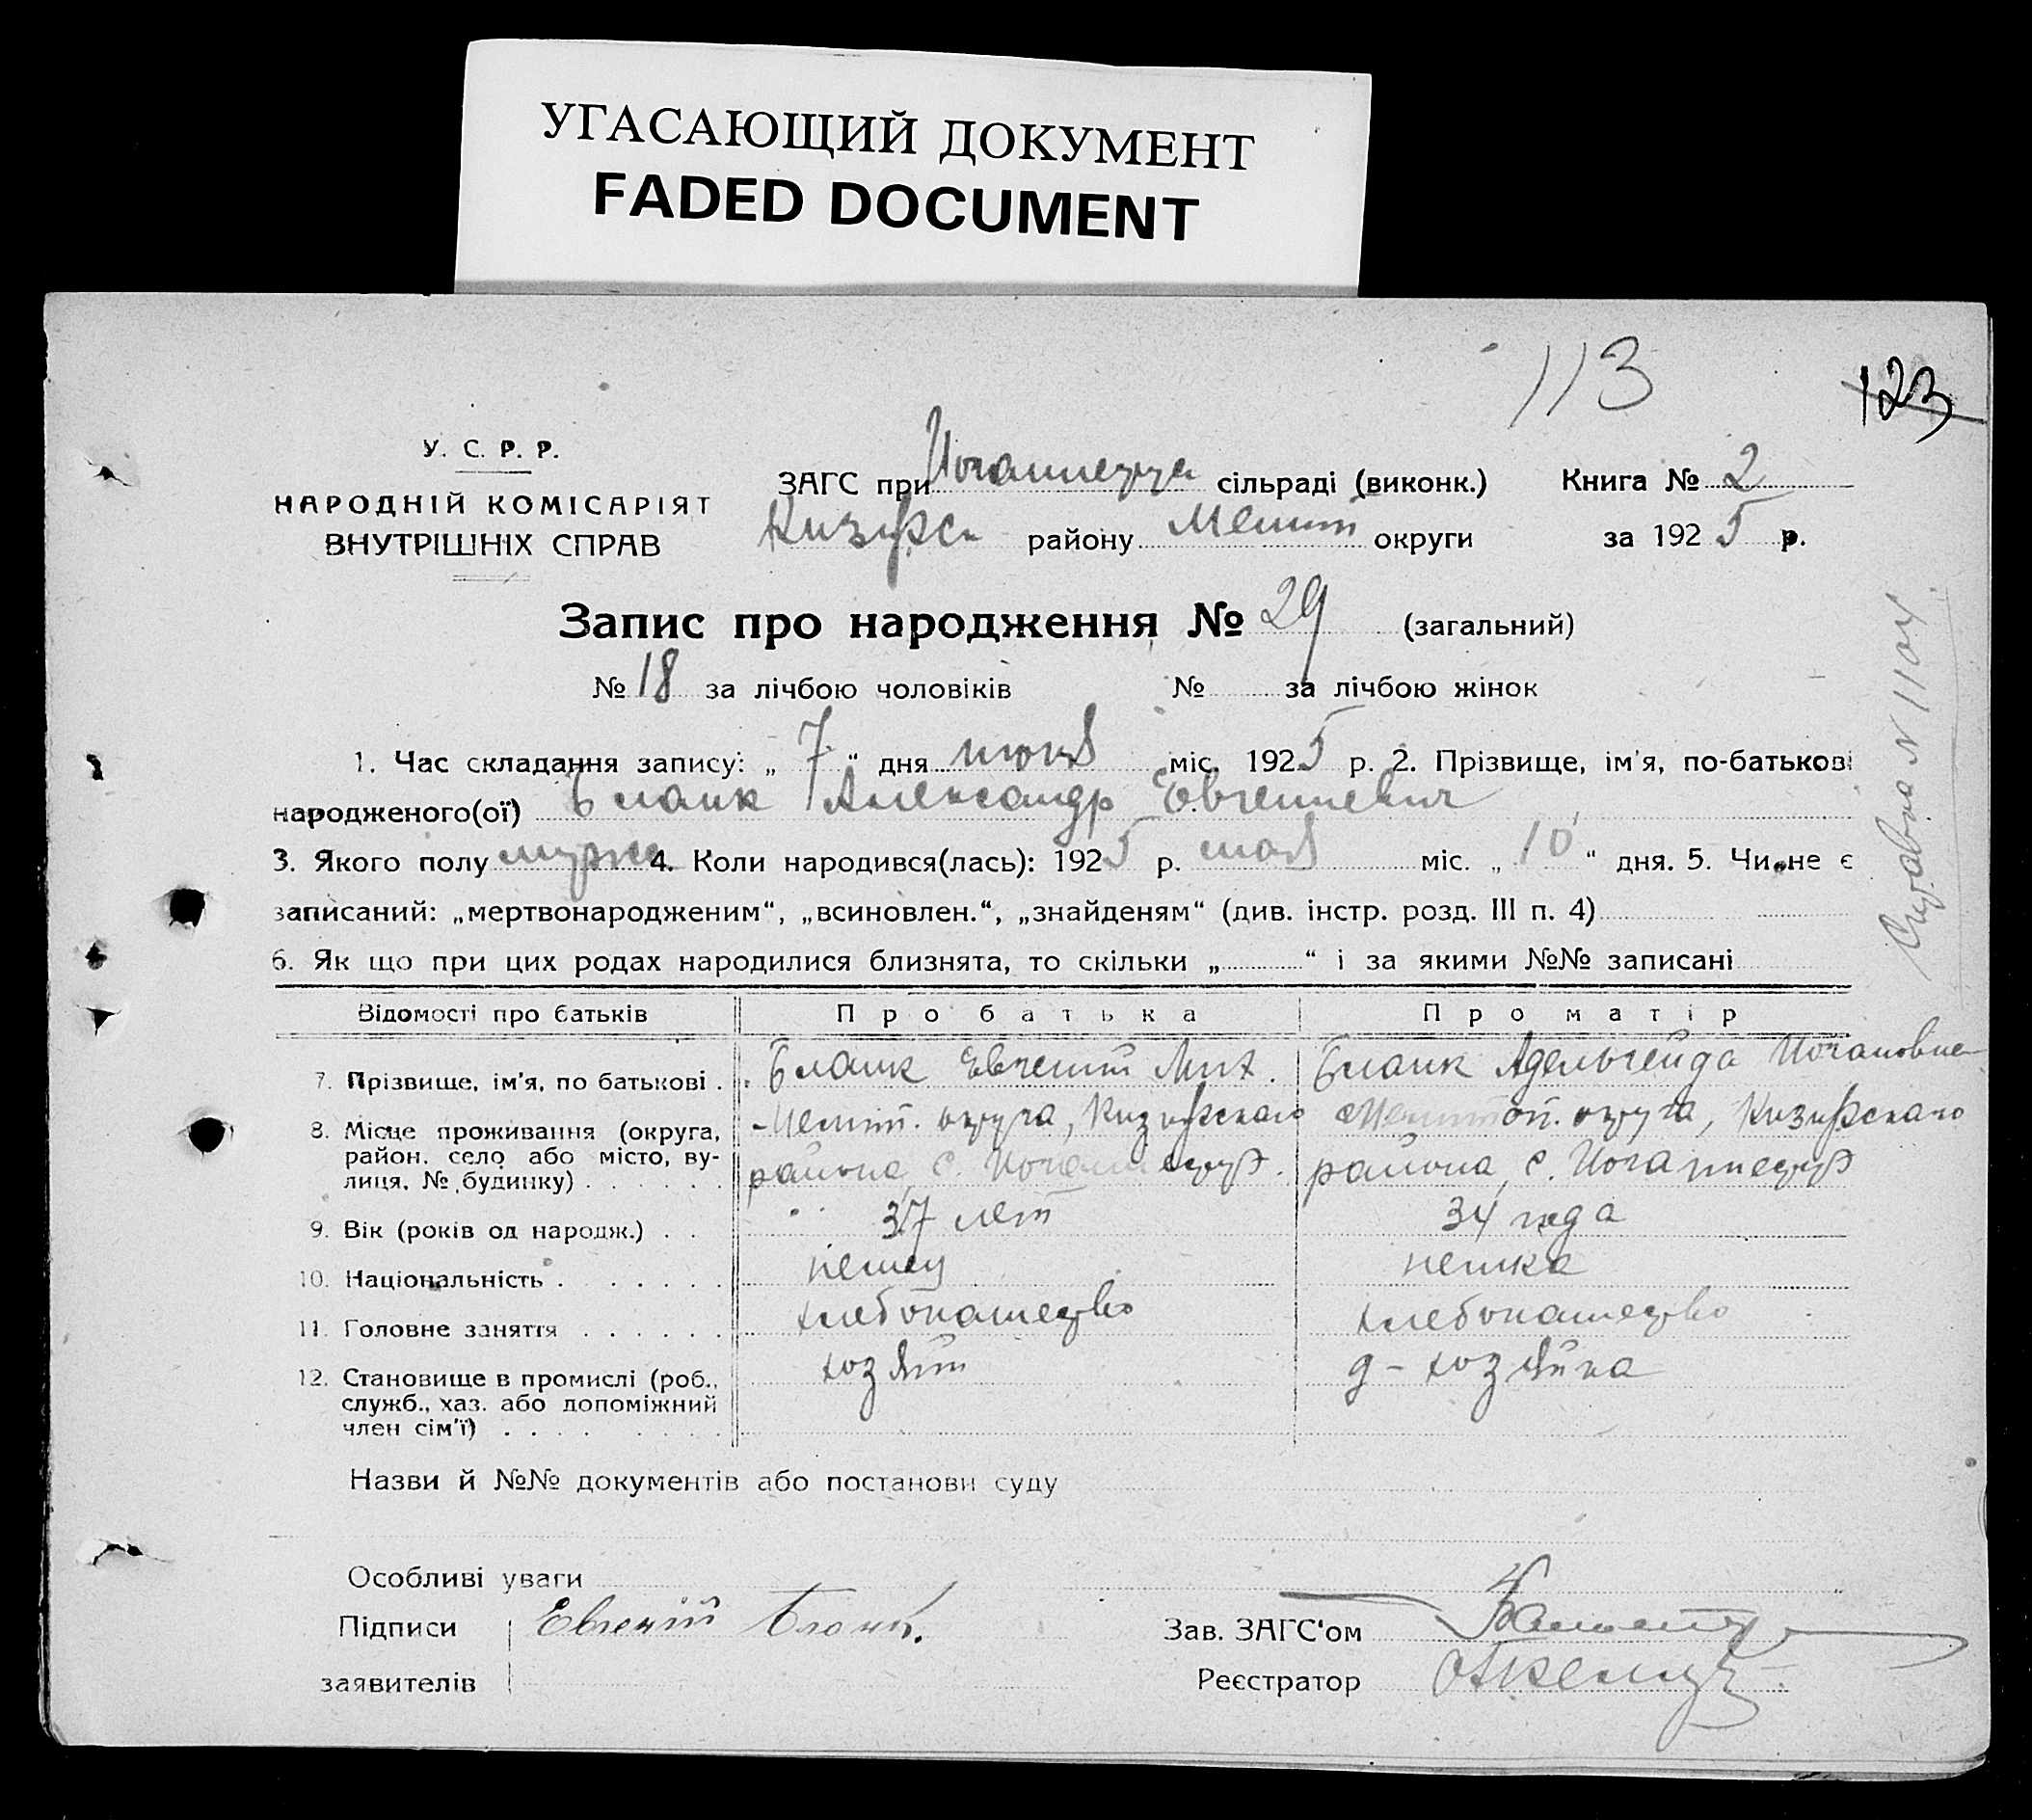 УГАСАЮЩИЙ ДОКУМЕНТ
FADED DOCUMENT
113
123
У. С. Р. Р.
НАРОДНІЙ КОМІСАРІЯТ
ВНУТРІШНІХ СПРАВ
ЗАГС при сільраді (виконк.) Книга № 2
району Мелит округи за 1925 р.
Запис про народження № 29 (загальний)
№ 18 за лічбою чоловіків № за лічбою жінок
1. Час складання запису: „ 7 “ дня міс. 1925 р. 2. Прізвище, ім'я, по-батькові
народженого(ої) Бланк Александр Евгениевич
3. Якого полу мужск 4. Коли народився(лась): 1925 р. мая міс. „ 10 “ дня. 5. Чи не є
записаний: „мертвонародженим“, „всиновлен.“, „знайденям“ (див. інстр. розд. III п. 4)
6. Як що при цих родах народилися близнята, то скільки „ “ і за якими №№ записані
Справка № 1104
Відомості про батьків Про батька Про матір
7. Прізвище, ім'я, по батькові . Бланк Евгений Мих. Бланк Адельгейда Иогановна
8. Місце проживання (округа, Мелит. округа, Кизиярскаго Мелитоп. округа, Кизиярскаго
район, село або місто, ву- района, с. района, с.
лиця, № будинку)
9. Вік (років од народж.) 37 лет 34 года
10. Національність немец немка
11. Головне заняття хлебопашество хлебопашество
12. Становище в промислі (роб., хозяин д-хозяйка
служб., хаз. або допоміжний
член сім'ї)
Назви й №№ документів або постанови суду
Особливі уваги
Підписи Евгеній Бланк. Зав. ЗАГС'ом
заявителів Реєстратор